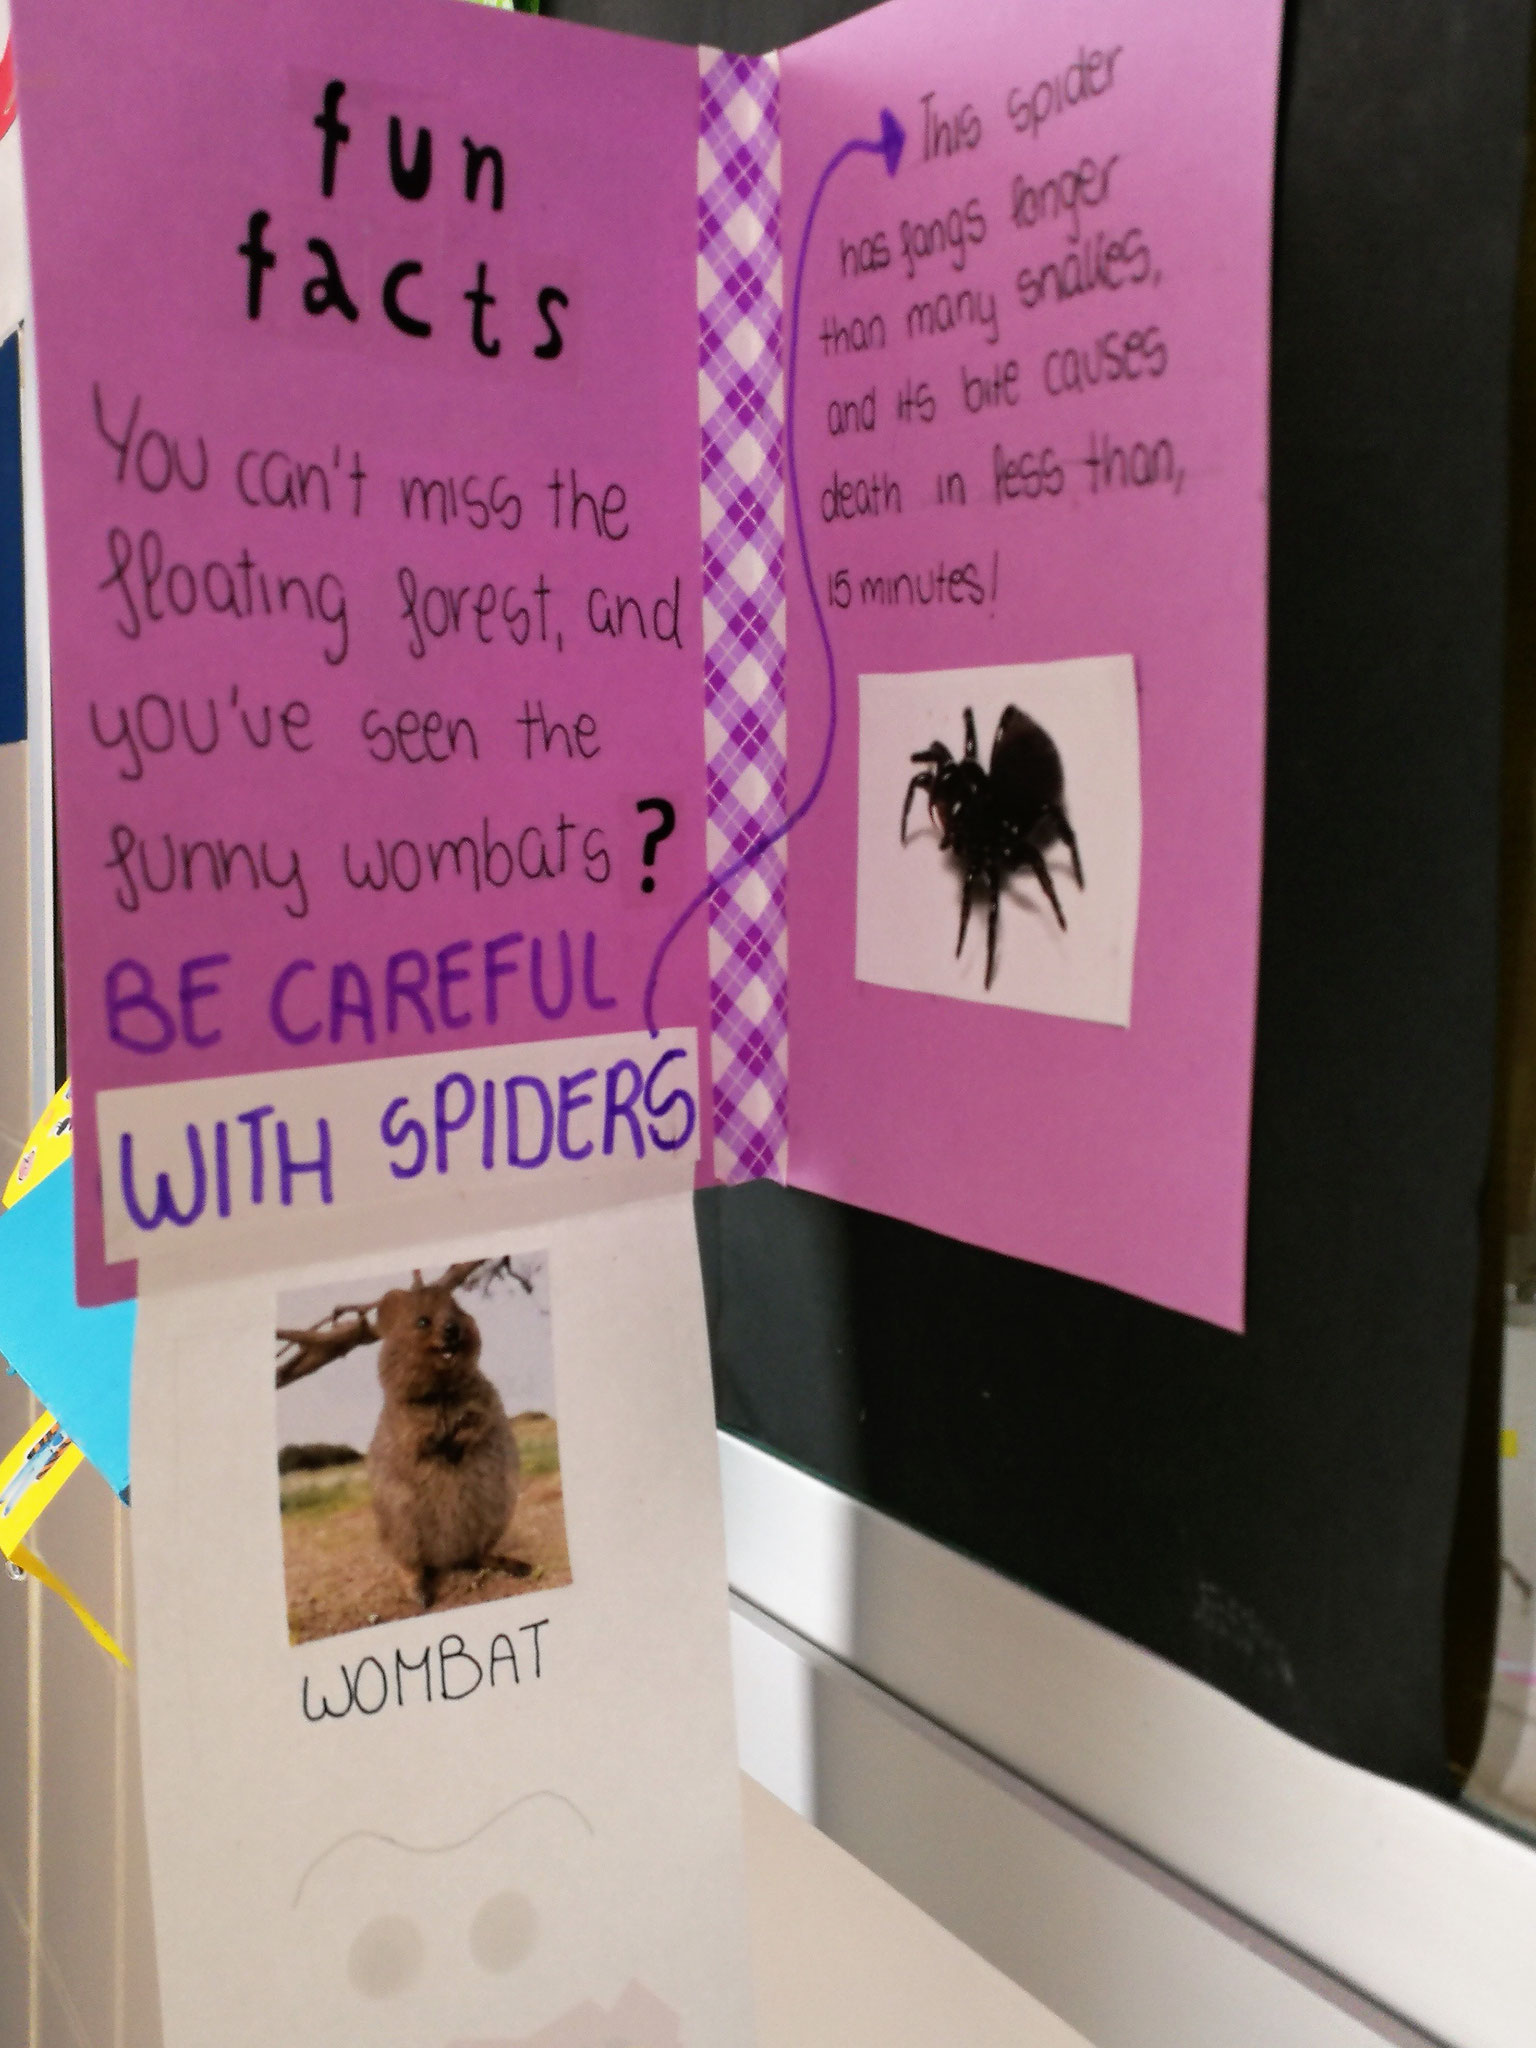 fun
facts
You can't miss the
floating forest, and
you've seen the
funny wombats?
BE CAREFUL
WITH SPIDERS
WOMBAT
This spider
has fangs longer
than many snakes,
and its bite causes
death in less than,
15 minutes!